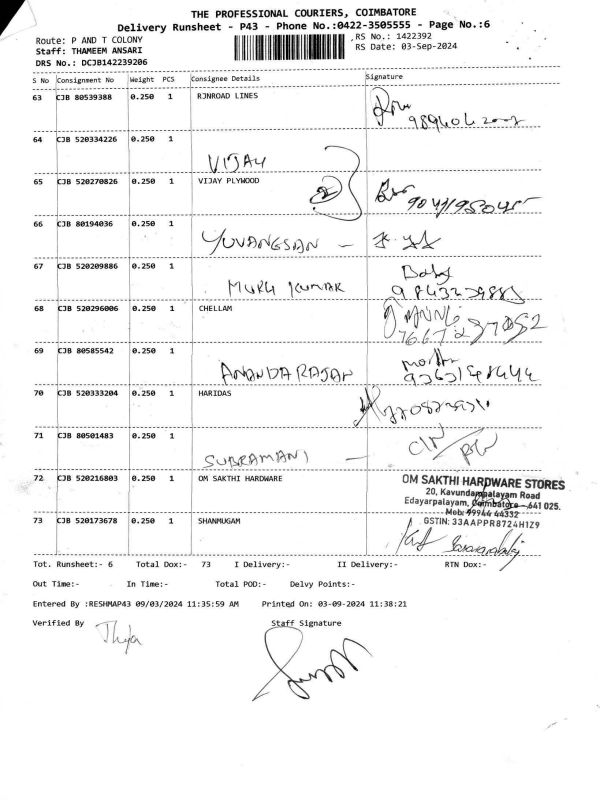 THE PROFESSIONAL COURIERS, COIMBATORE
Delivery Runsheet - P43 - Phone No.:0422-3505555 - Page No.:6
Route: P AND T COLONY
,RS No.: 1422392
Staff: THAMEEM ANSARI
RS Date: 03-Sep-2024
DRS No.: DCJB142239206
S No Consignment No Weight PCS Consignee Details Signature
63 CJB 80539388 0.250 1 RJNROAD LINES
64 CJB 520334226 0.250 1
VIJAY
65 CJB 520270826 0.250 1 VIJAY PLYWOOD
2
66 CJB 80194036 0.250 1
YUVANGSAN -
67 CJB 520209886 0.250 1
Baby
MURU KUMAR
68 CJB 520296006 0.250 1 CHELLAM
69 CJB 80585542 0.250 1
ANANDARAJAN
70 CJB 520333204 0.250 1 HARIDAS
71 CJB 80501483 0.250 1
SUBRAMANI -
72 CJB 520216803 0.250 1 OM SAKTHI HARDWARE
OM SAKTHI HARDWARE STORES
20, Kavundampalayam Road
Edayarpalayam, Coimbatore - 641 025.
Mob: 99944 44332
GSTIN: 33AAPPR8724H1Z9
73 CJB 520173678 0.250 1 SHANMUGAM
Tot. Runsheet:- 6 Total Dox:- 73 I Delivery:- II Delivery:- RTN Dox:-
Out Time:- In Time:- Total POD:- Delvy Points:-
Entered By :RESHMAP43 09/03/2024 11:35:59 AM Printed On: 03-09-2024 11:38:21
Verified By Staff Signature